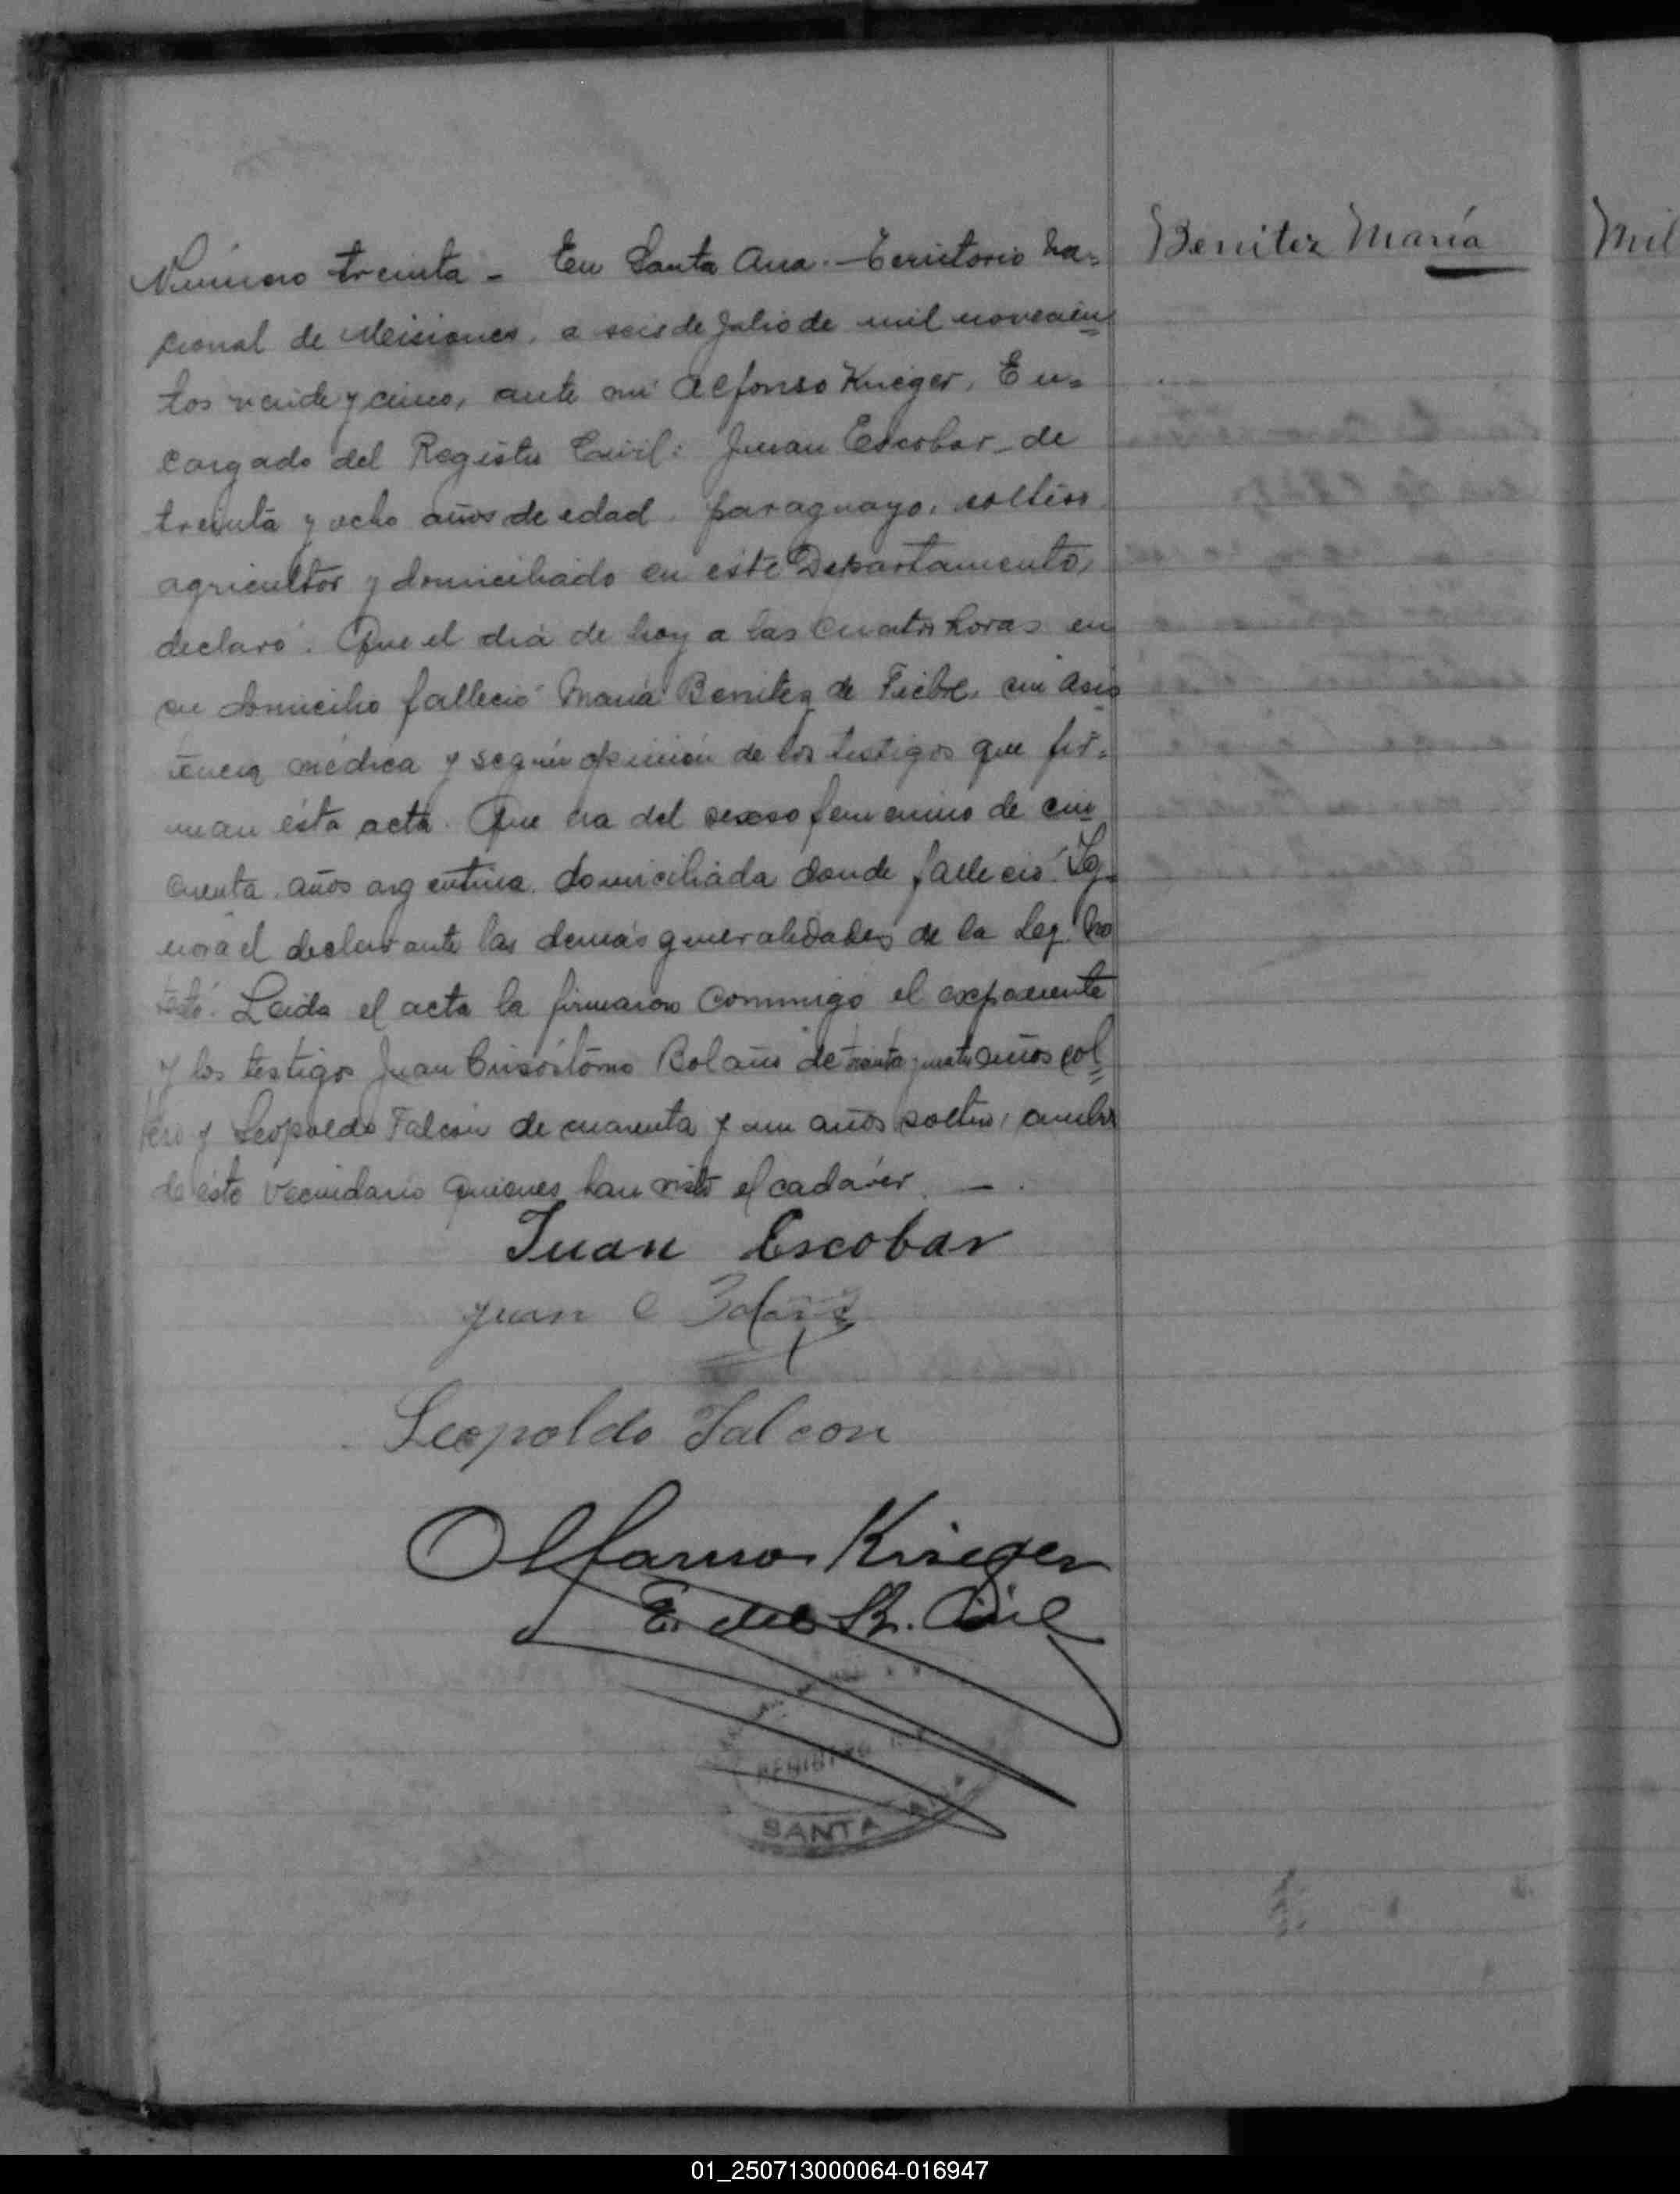 Número treinta - En Santa Ana.- Territorio Na=
cional de Misiones, a seis de Julio de mil novecien=
tos veinte y cinco, ante mi Alfonso Krieger, En=
cargado del Registro Civil: Juan Escobar de
treinta y ocho años de edad, paraguayo, soltero
agricultor y domiciliado en éste Departamento,
declaró: Que el dia de hoy a las cuatro horas en
su domicilio falleció María Benitez de Fiebre, sin asis
tencia médica y según opinión de los testigos que fir=
man ésta acta. Que era del sexso femenino de cin
cuenta años argentina, domiciliada donde falleció. Ig=
nora el declarante las demás generalidades de la Ley. No
testó. Leida el acta la firmaron conmigo el exponente
y los testigos Juan Crisóstomo Bolaño de treinta y cuatro años sol=
tero y Leopoldo Falcón de cuarenta y un años soltero, ambos
de éste vecindario quienes han visto el cadáver. - .
Juan Escobar
Juan C Bolaño
Leopoldo Falcon
Alfonso Krieger
E. del R. Civil
REGISTRO
SANTA ANA
Benitez María
Mil
01_250713000064-016947